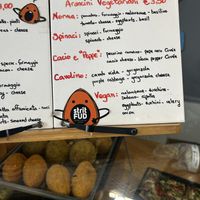 Arancini Vegetariani €3,50
Norma: pomodoro - formaggio - melanzane - basilico
tomato sauce - cheese - eggplants - basil
Spinaci: spinaci - formaggio
spinach - cheese
Cacio e "Pepe": pecorino romano - pepe nero
cheese - black pepper
Cavolino: cavolo viola - gorgonzola
purple cabbage - gorgonzola cheese
Vegan: melanzane - zucchine
sedano - cipolla
eggplants - zucchini - celery
onion
3,00
cheese
Speck - formaggio
bacon - cheese
formaggio
cheese
alla affumicata
sauce
cheese
strit
FUD